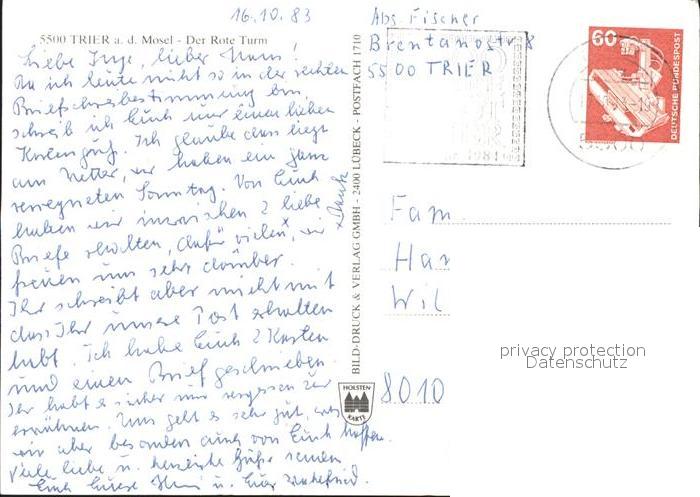 16.10.83
Abs. Fischer
Brentanostr 8
5500 TRIER
5500 TRIER a. d. Mosel - Der Rote Turm
Liebe Inge, lieber Hans!
Da ich heute nicht so in der rechten
Briefschreibestimmung bin,
schreib ich Euch nur einen lieben
Kartengruß. Ich glaube das liegt
am Wetter, wir haben ein ganz
verregneten Sonntag. Von Euch
haben wir inzwischen 2 liebe
Briefe erhalten, dafür vielen x, wir
x Dank
freuen uns sehr darüber.
Ihr schreibt aber nicht mit
dass Ihr unsere Post erhalten
habt. Ich habe Euch 2 Karten
und einen Brief geschrieben
Ihr habt es sicher nur vergessen zu
erwähnen. Uns geht es sehr gut, was
wir aber besonders auch von Euch hoffen.
Viele liebe u. herzliche Grüße senden
Euch Eure u.
BILD-DRUCK & VERLAG GMBH - 2400 LÜBECK - POSTFACH 1710
HOLSTEN
KARTE
60
DEUTSCHE BUNDESPOST
Fam.
Har
Wil
8010
privacy protection
Datenschutz